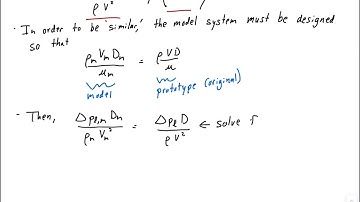 ρ V²
· In order to be 'similar,' the model system must be designed
so that
ρₘ Vₘ Dₘ / μₘ = ρ V D / μ
model prototype (original)
· Then, Δpℓ,ₘ Dₘ / ρₘ Vₘ² = Δpℓ D / ρ V² ← solve